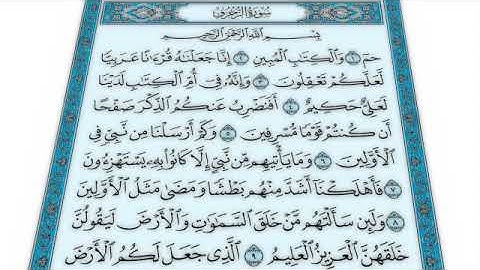 سُورَةُ الزُّخْرُفِ
بِسْمِ اللَّهِ الرَّحْمَٰنِ الرَّحِيمِ
حمٓ ١ وَالْكِتَابِ الْمُبِينِ ٢ إِنَّا جَعَلْنَاهُ قُرْءَانًا عَرَبِيًّا
لَعَلَّكُمْ تَعْقِلُونَ ٣ وَإِنَّهُ فِي أُمِّ الْكِتَابِ لَدَيْنَا
لَعَلِيٌّ حَكِيمٌ ٤ أَفَنَضْرِبُ عَنكُمُ الذِّكْرَ صَفْحًا
أَن كُنتُمْ قَوْمًا مُّسْرِفِينَ ٥ وَكَمْ أَرْسَلْنَا مِن نَّبِيٍّ فِي
الْأَوَّلِينَ ٦ وَمَا يَأْتِيهِم مِّن نَّبِيٍّ إِلَّا كَانُوا بِهِ يَسْتَهْزِءُونَ
٧ فَأَهْلَكْنَا أَشَدَّ مِنْهُم بَطْشًا وَمَضَىٰ مَثَلُ الْأَوَّلِينَ
٨ وَلَئِن سَأَلْتَهُم مَّنْ خَلَقَ السَّمَاوَاتِ وَالْأَرْضَ لَيَقُولُنَّ
خَلَقَهُنَّ الْعَزِيزُ الْعَلِيمُ ٩ الَّذِي جَعَلَ لَكُمُ الْأَرْضَ